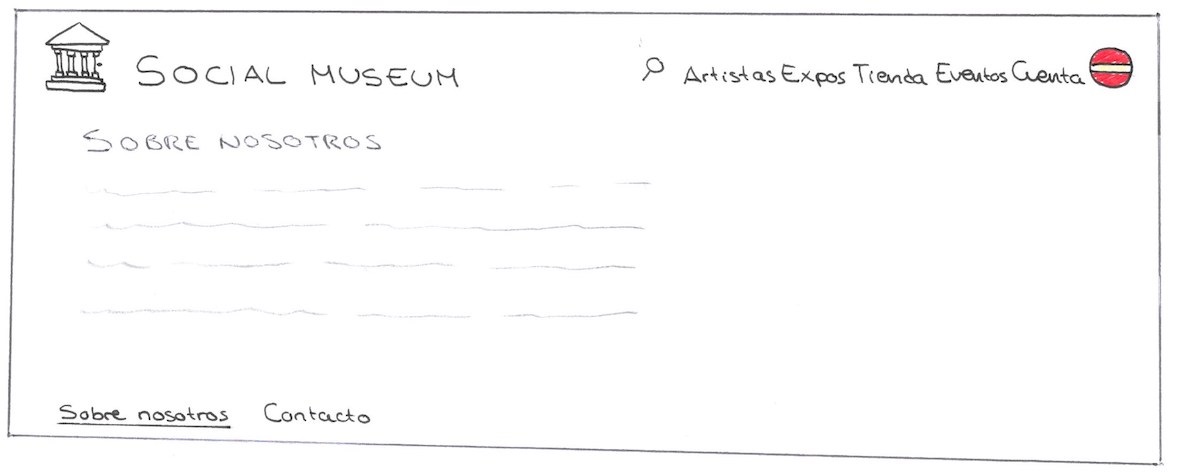 SOCIAL MUSEUM
Artistas Expos Tienda Eventos Cuenta
SOBRE NOSOTROS
Sobre nosotros Contacto